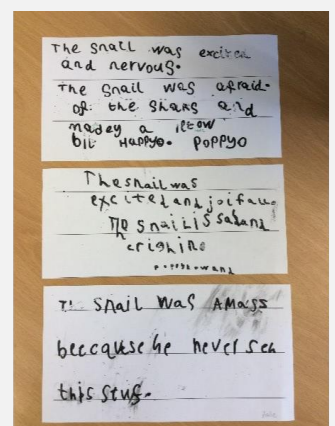 The snail was excited
and nervous.
The snail was afraid.
of. the sharks and
madey a
bit Happyo. Poppyo
The snail was
excited and joifau.
The snail is sad and
crighing
T snail was Amass
beccause he never seh
this stuf.